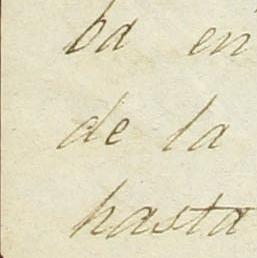 ba en
de la
hasta